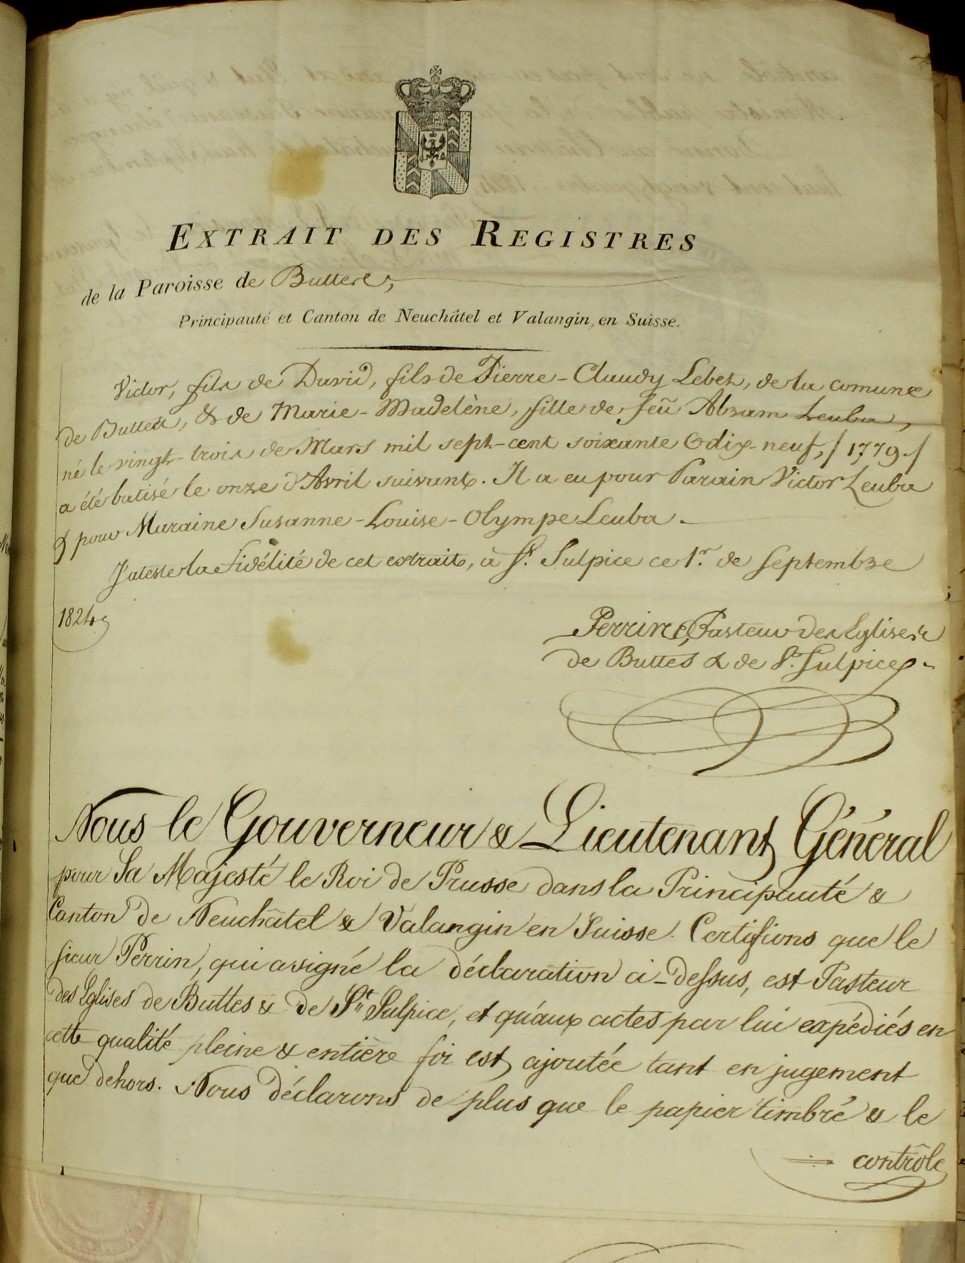 EXTRAIT DES REGISTRES
de la Paroisse de Buttes,
Principauté et Canton de Neuchâtel et Valangin, en Suisse.
Victor, fils de David, fils de Pierre-Claudy Lebet, de la comune
de Buttes, & de Marie-Madelène, fille de feu Abram Leuba,
né le vingt-trois de Mars mil sept-cent soixante & dix-neuf, /1779./
a été batisé le onze d'Avril suivant. Il a eu pour Parain Victor Leuba
& pour Maraine Susanne-Louise-Olympe Leuba.
J'ateste la Fidélité de cet extrait, à St. Sulpice ce 1r. de Septembre
1824,
Perrin, Pasteur des Eglises
de Buttes & de St. Sulpice.
Nous le Gouverneur & Lieutenant Général
pour Sa Majesté le Roi de Prusse dans la Principauté &
Canton de Neuchâtel & Valangin en Suisse. Certifions que le
sieur Perrin, qui a signé la déclaration ci-dessus, est Pasteur
des Eglises de Buttes & de St. Sulpice, et qu'aux actes par lui expédiés en
cette qualité pleine & entière foi est ajoutée tant en jugement
que dehors. Nous déclarons de plus que le papier timbré & le
contrôle